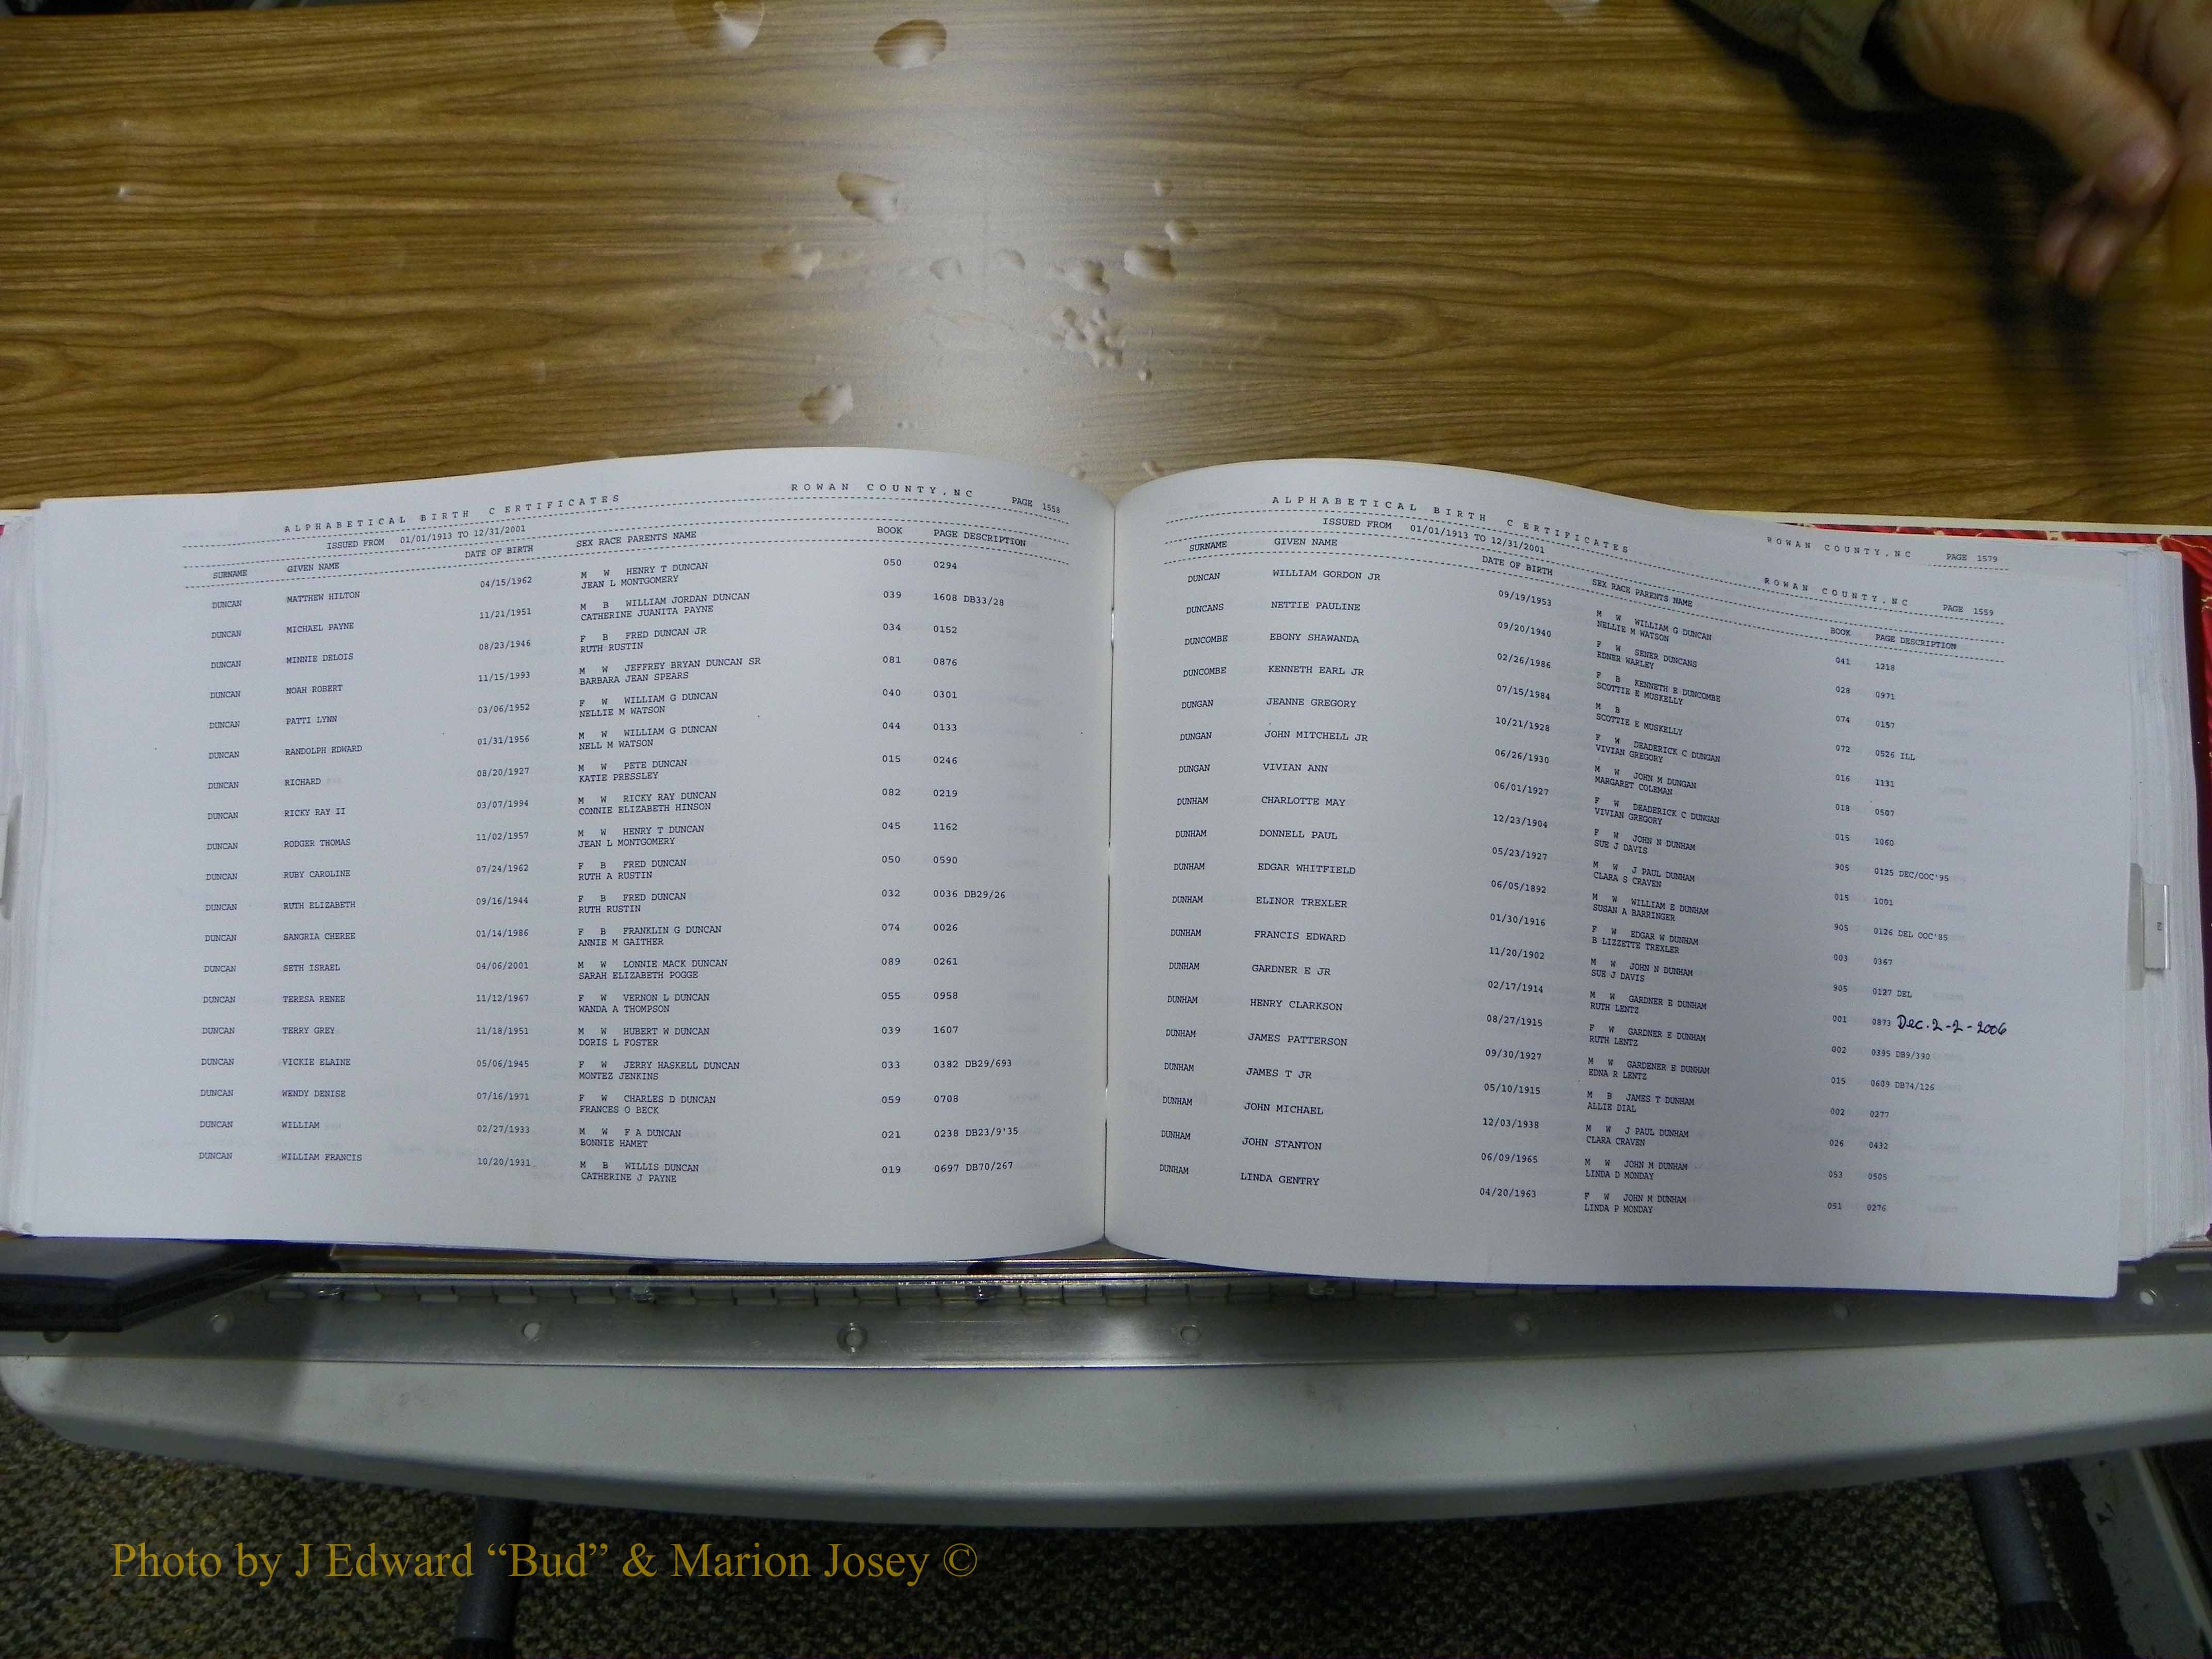 ALPHABETICAL BIRTH CERTIFICATES ROWAN COUNTY, NC PAGE 1558
ISSUED FROM 01/01/1913 TO 12/31/2001
SURNAME GIVEN NAME DATE OF BIRTH SEX RACE PARENTS NAME BOOK PAGE DESCRIPTION
DUNCAN MATTHEW HILTON 04/15/1962 M W HENRY T DUNCAN 050 0294
JEAN L MONTGOMERY
DUNCAN MICHAEL PAYNE 11/21/1951 M B WILLIAM JORDAN DUNCAN 039 1608 DB33/28
CATHERINE JUANITA PAYNE
DUNCAN MINNIE DELOIS 08/23/1946 F B FRED DUNCAN JR 034 0152
RUTH RUSTIN
DUNCAN NOAH ROBERT 11/15/1993 M W JEFFREY BRYAN DUNCAN SR 081 0876
BARBARA JEAN SPEARS
DUNCAN PATTI LYNN 03/06/1952 F W WILLIAM G DUNCAN 040 0301
NELLIE M WATSON
DUNCAN RANDOLPH EDWARD 01/31/1956 M W WILLIAM G DUNCAN 044 0133
NELL M WATSON
DUNCAN RICHARD 08/20/1927 M W PETE DUNCAN 015 0246
KATIE PRESSLEY
DUNCAN RICKY RAY II 03/07/1994 M W RICKY RAY DUNCAN 082 0219
CONNIE ELIZABETH HINSON
DUNCAN RODGER THOMAS 11/02/1957 M W HENRY T DUNCAN 045 1162
JEAN L MONTGOMERY
DUNCAN RUBY CAROLINE 07/24/1962 F B FRED DUNCAN 050 0590
RUTH A RUSTIN
DUNCAN RUTH ELIZABETH 09/16/1944 F B FRED DUNCAN 032 0036 DB29/26
RUTH RUSTIN
DUNCAN SANGRIA CHEREE 01/14/1986 F B FRANKLIN G DUNCAN 074 0026
ANNIE M GAITHER
DUNCAN SETH ISRAEL 04/06/2001 M W LONNIE MACK DUNCAN 089 0261
SARAH ELIZABETH POGGE
DUNCAN TERESA RENEE 11/12/1967 F W VERNON L DUNCAN 055 0958
WANDA A THOMPSON
DUNCAN TERRY GREY 11/18/1951 M W HUBERT W DUNCAN 039 1607
DORIS L FOSTER
DUNCAN VICKIE ELAINE 05/06/1945 F W JERRY HASKELL DUNCAN 033 0382 DB29/693
MONTEZ JENKINS
DUNCAN WENDY DENISE 07/16/1971 F W CHARLES D DUNCAN 059 0708
FRANCES O BECK
DUNCAN WILLIAM 02/27/1933 M W F A DUNCAN 021 0238 DB23/9'35
BONNIE HAMET
DUNCAN WILLIAM FRANCIS 10/20/1931 M B WILLIS DUNCAN 019 0697 DB70/267
CATHERINE J PAYNE
ROWAN COUNTY, NC PAGE 1579
ALPHABETICAL BIRTH CERTIFICATES ROWAN COUNTY, NC PAGE 1559
ISSUED FROM 01/01/1913 TO 12/31/2001
SURNAME GIVEN NAME DATE OF BIRTH SEX RACE PARENTS NAME BOOK PAGE DESCRIPTION
DUNCAN WILLIAM GORDON JR 09/19/1953 M W WILLIAM G DUNCAN 041 1218
NELLIE M WATSON
DUNCANS NETTIE PAULINE 09/20/1940 F W SENER DUNCANS 028 0971
EDNER WARLEY
DUNCOMBE EBONY SHAWANDA 02/26/1986 F B KENNETH E DUNCOMBE 074 0157
SCOTTIE E MUSKELLY
DUNCOMBE KENNETH EARL JR 07/15/1984 M B 072 0526 ILL
SCOTTIE E MUSKELLY
DUNGAN JEANNE GREGORY 10/21/1928 F W DEADERICK C DUNGAN 016 1131
VIVIAN GREGORY
DUNGAN JOHN MITCHELL JR 06/26/1930 M W JOHN M DUNGAN 018 0507
MARGARET COLEMAN
DUNGAN VIVIAN ANN 06/01/1927 F W DEADERICK C DUNGAN 015 1060
VIVIAN GREGORY
DUNHAM CHARLOTTE MAY 12/23/1904 F W JOHN N DUNHAM 905 0125 DEC/OOC'95
SUE J DAVIS
DUNHAM DONNELL PAUL 05/23/1927 M W J PAUL DUNHAM 015 1001
CLARA S CRAVEN
DUNHAM EDGAR WHITFIELD 06/05/1892 M W WILLIAM E DUNHAM 905 0126 DEL OOC'85
SUSAN A BARRINGER
DUNHAM ELINOR TREXLER 01/30/1916 F W EDGAR W DUNHAM 003 0367
B LIZZETTE TREXLER
DUNHAM FRANCIS EDWARD 11/20/1902 M W JOHN N DUNHAM 905 0127 DEL
SUE J DAVIS
DUNHAM GARDNER E JR 02/17/1914 M W GARDNER E DUNHAM 001 0873 Dec. 2-2-2006
RUTH LENTZ
DUNHAM HENRY CLARKSON 08/27/1915 F W GARDNER E DUNHAM 002 0395 DB9/390
RUTH LENTZ
DUNHAM JAMES PATTERSON 09/30/1927 M W GARDENER E DUNHAM 015 0609 DB74/126
EDNA R LENTZ
DUNHAM JAMES T JR 05/10/1915 M B JAMES T DUNHAM 002 0277
ALLIE DIAL
DUNHAM JOHN MICHAEL 12/03/1938 M W J PAUL DUNHAM 026 0432
CLARA CRAVEN
DUNHAM JOHN STANTON 06/09/1965 M W JOHN M DUNHAM 053 0505
LINDA D MONDAY
DUNHAM LINDA GENTRY 04/20/1963 F W JOHN M DUNHAM 051 0276
LINDA P MONDAY
Photo by J Edward “Bud” & Marion Josey ©